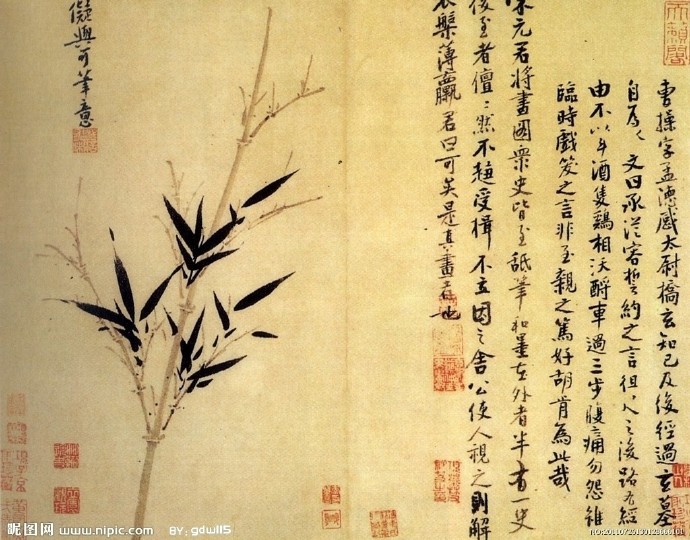 天籟閣
曹操字孟德感太尉橋玄知己及後經過玄墓
自為文曰承從容誓約之言徂之後路有經
由不以斗酒隻鷄相沃酹車過三步腹痛勿怨雖
臨時戲笑之言非至親之篤好胡肯為此哉
宋元君將畫圖衆史皆至舐筆和墨在外者半有一史
後至者儃儃然不趨受揖不立因之舍公使人視之則解
衣槃薄臝君曰可矣是真畫者也
儗與可筆意
昵图网 www.nipic.com BY: gdwll5